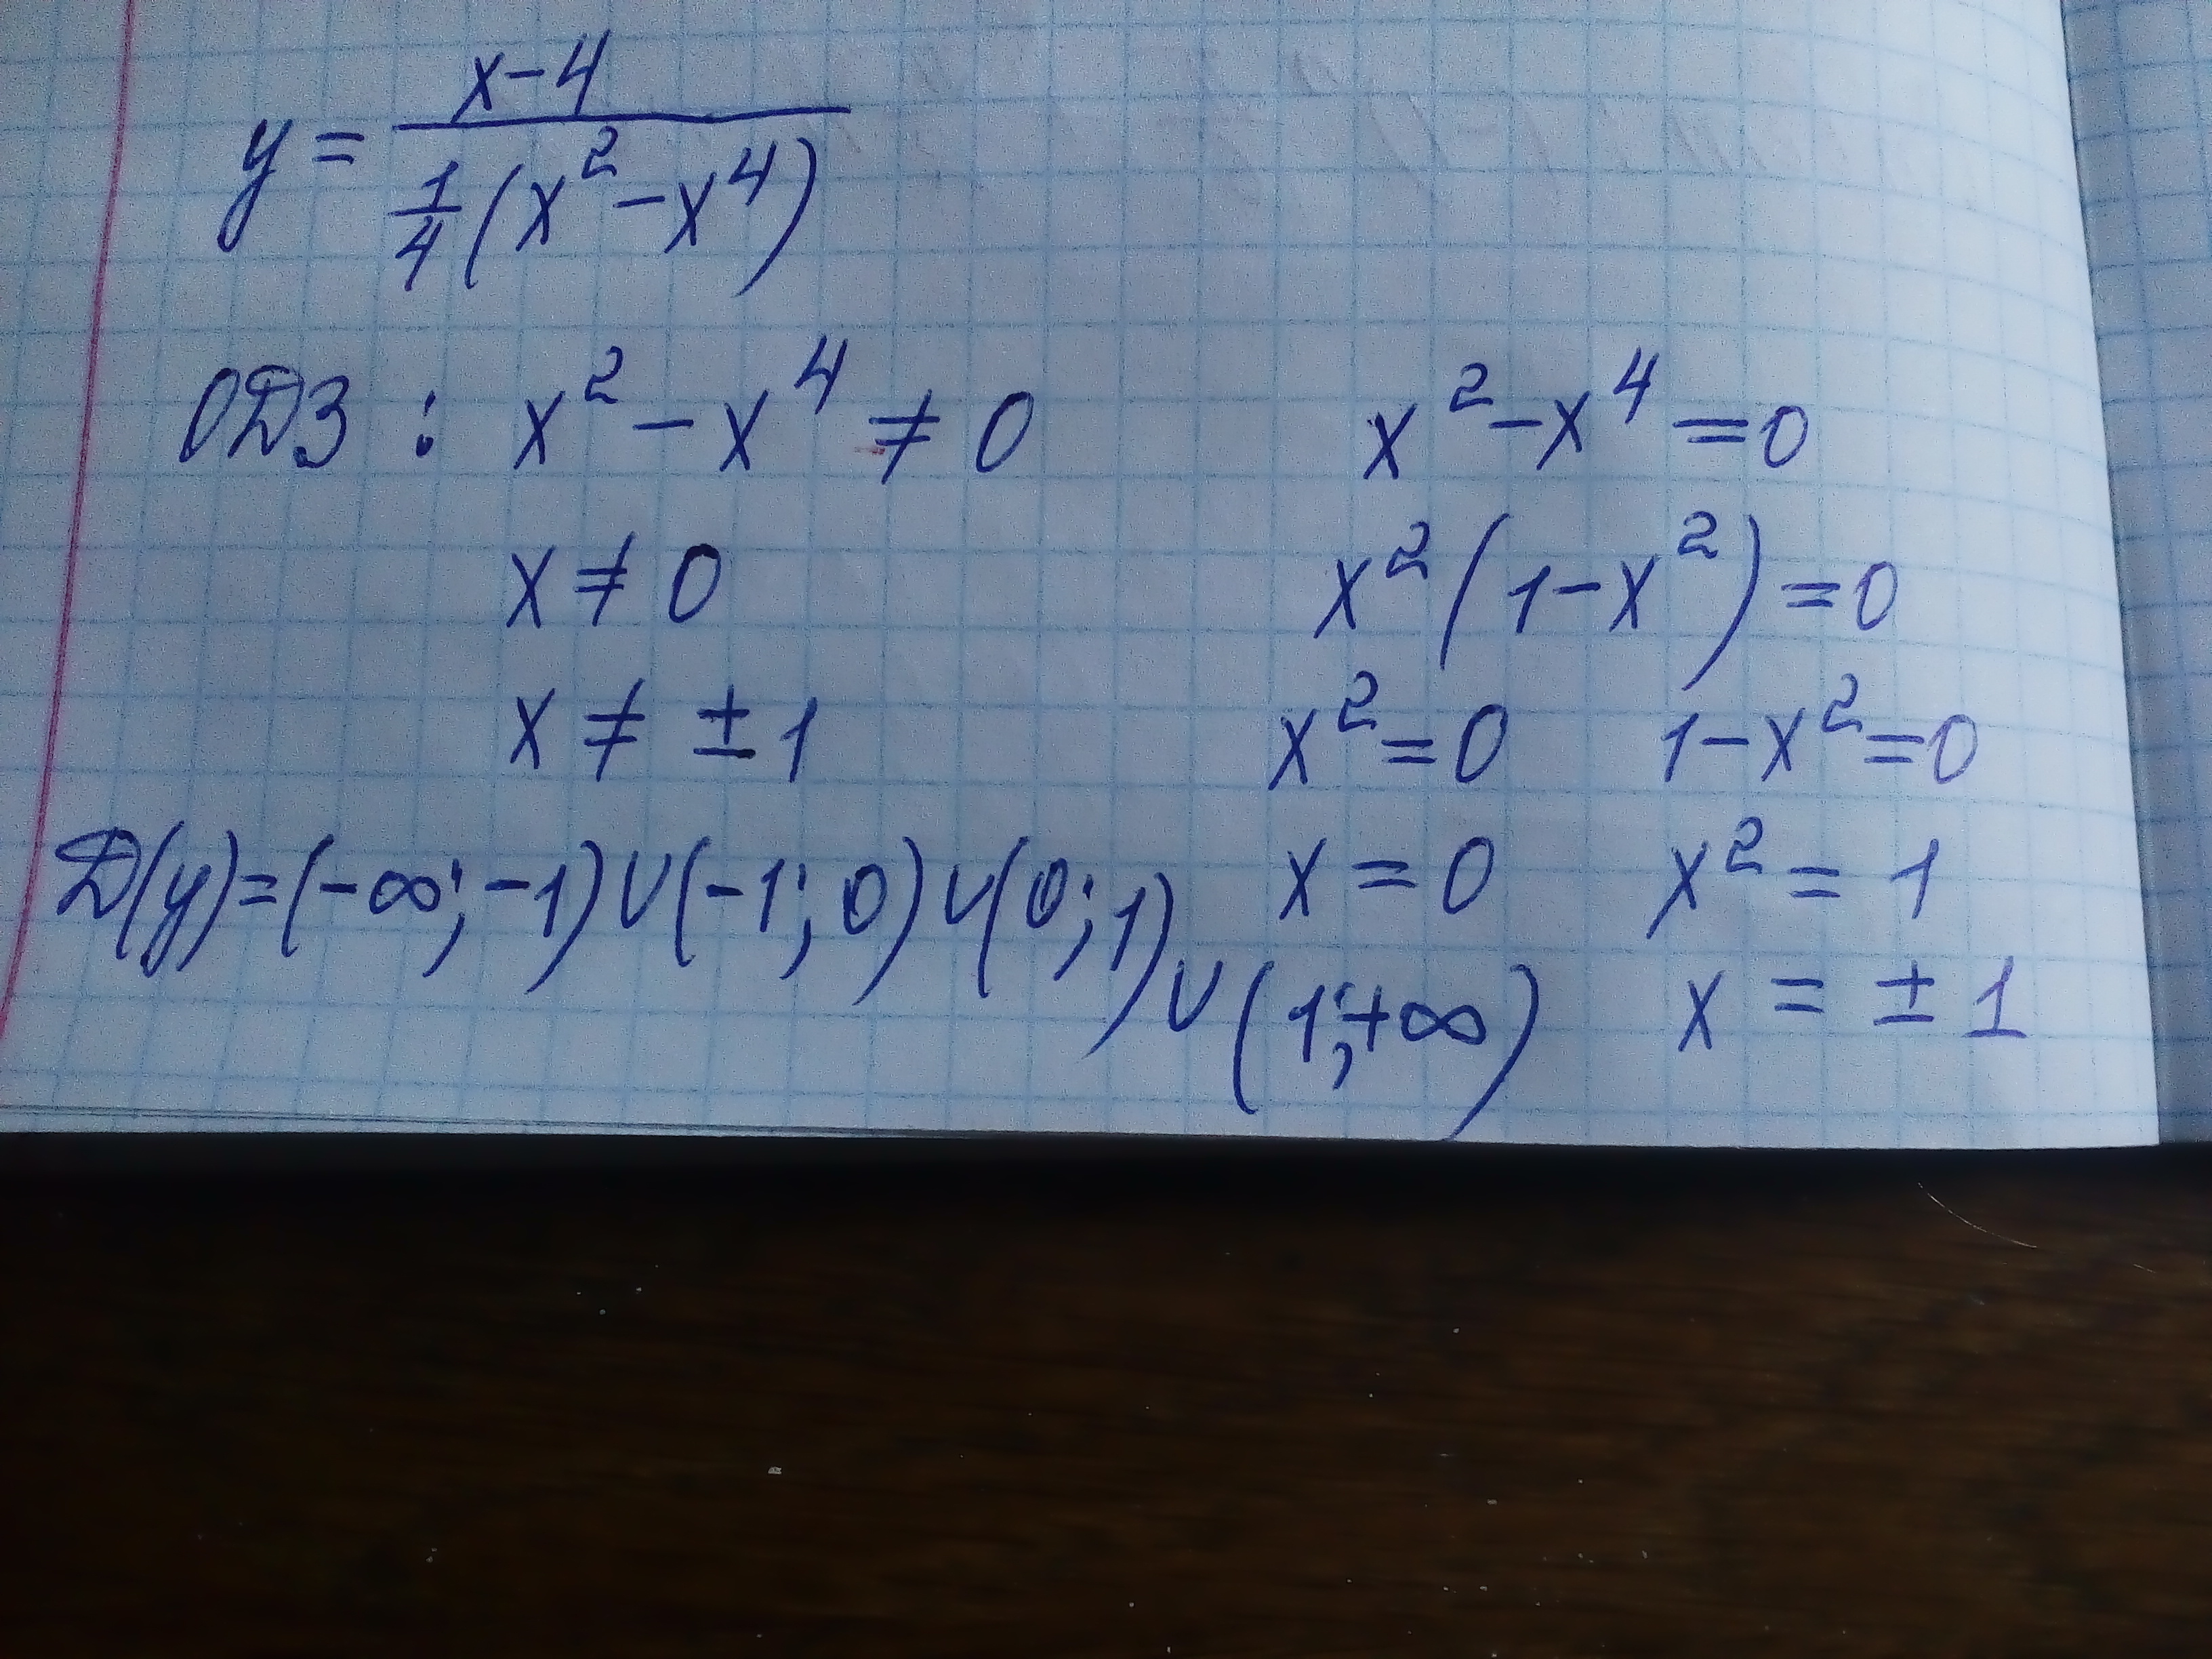 y = \frac{x-4}{\frac{1}{4}(x^2-x^4)}
ОДЗ : x^2 - x^4 ≠ 0
x ≠ 0
x ≠ ± 1
D(y)=(-∞; -1)∪(-1; 0)∪(0; 1)
∪(1; +∞)
x^2-x^4=0
x^2(1-x^2)=0
x^2=0 1-x^2=0
x=0 x^2=1
x=±1